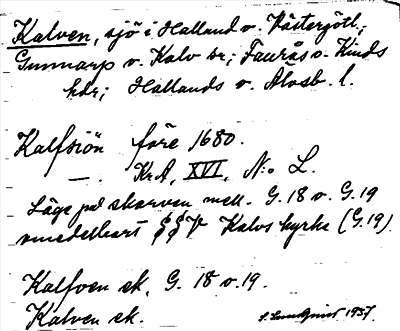 Kalven, sjö i Halland o. Västergötl.;
Gunnarp o. Kalv sr; Faurås o. Kinds
hdr; Hallands o. Älvsb. l.
Kalfsiön före 1680.
—. KrA, XVI, N:o L.
Läge på skarven mell. G. 18 o. G. 19
omedelbart V Kalvs kyrka (G.19).
Kalfven ek. G. 18 o. 19.
Kalven ek.
S. Lundqvist 1937